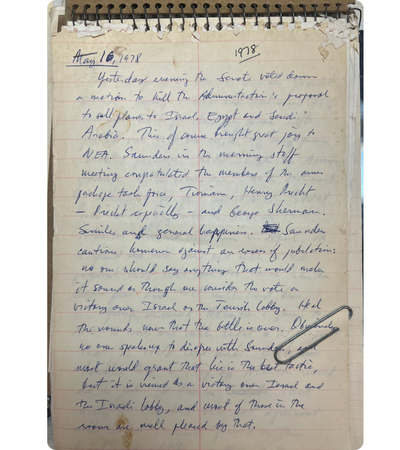 May 16, 1978
1978
Yesterday evening the Senate voted down
a motion to kill the Administration's proposal
to sell planes to Israel, Egypt and Saudi
Arabia. This of course brought great joy to
NEA. Saunders in the morning staff
meeting congratulated the members of the arms
package task force, Henry Precht
— Precht especially — and George Sherman.
Smiles and general happiness. Saunders
cautions however against an excess of jubilation:
no one should say anything that would make
it sound as though we consider the vote a
victory over Israel or the Jewish lobby. Heal
the wounds now that the battle is over. Obviously
no one speaks up to disagree with Saunders, and
most would grant that his is the best tactic,
but it is viewed as a victory over Israel and
the Israeli lobby, and most of those in the
room are well pleased by that.